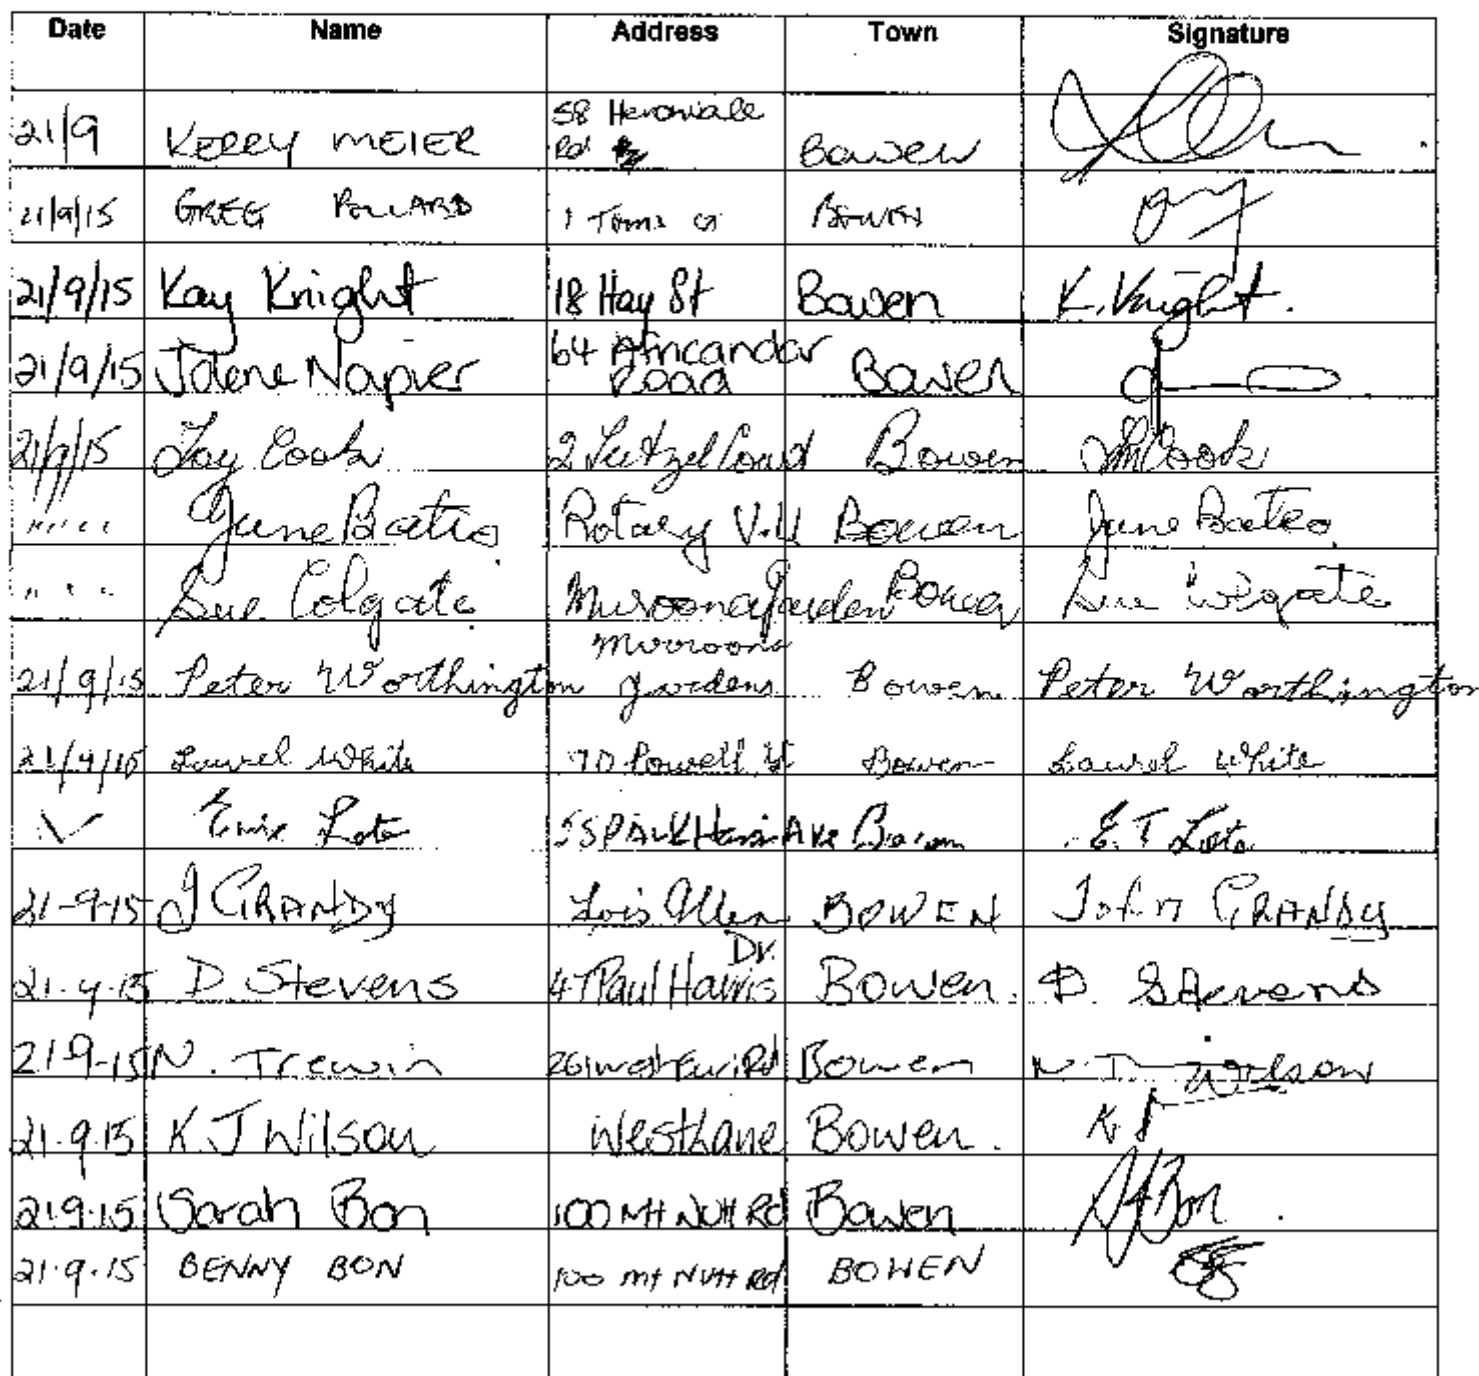 Date Name Address Town Signature
58 Heronvale
21/9 KERRY MEIER Rd Bowen
21/9/15 GREG POLLARD 1 Toms Ct BOWEN
21/9/15 Kay Knight 18 Hay St Bowen K. Knight.
64 Africandar
21/9/15 Jolene Napier Road Bowen
21/9/15 Joy Cook 2 Court Bowen Cook
" " " " June Bates Rotary Vill Bowen June Bates
" " " Sue Colgate Murroona Garden Bowen Sue Colgate
Murroona
21/9/15 Peter Worthington gardens Bowen Peter Worthington
21/9/15 Laurel White 70 Powell St Bowen Laurel White
Lote Ave Bowen E. T Lote
21-9-15 J GRANDY Lois Allen BOWEN John GRANDY
Dr.
21.9.15 D Stevens 47 Paul Harris Bowen. D. Stevens
21-9-15 N. Trewin Rd Bowen N. T
Wilson
21.9.15 K.J Wilson West Lane Bowen. K J
21.9.15 Sarah Bon 100 Mt Nutt Rd Bowen Bon
21.9.15 BENNY BON 100 Mt Nutt Rd BOWEN